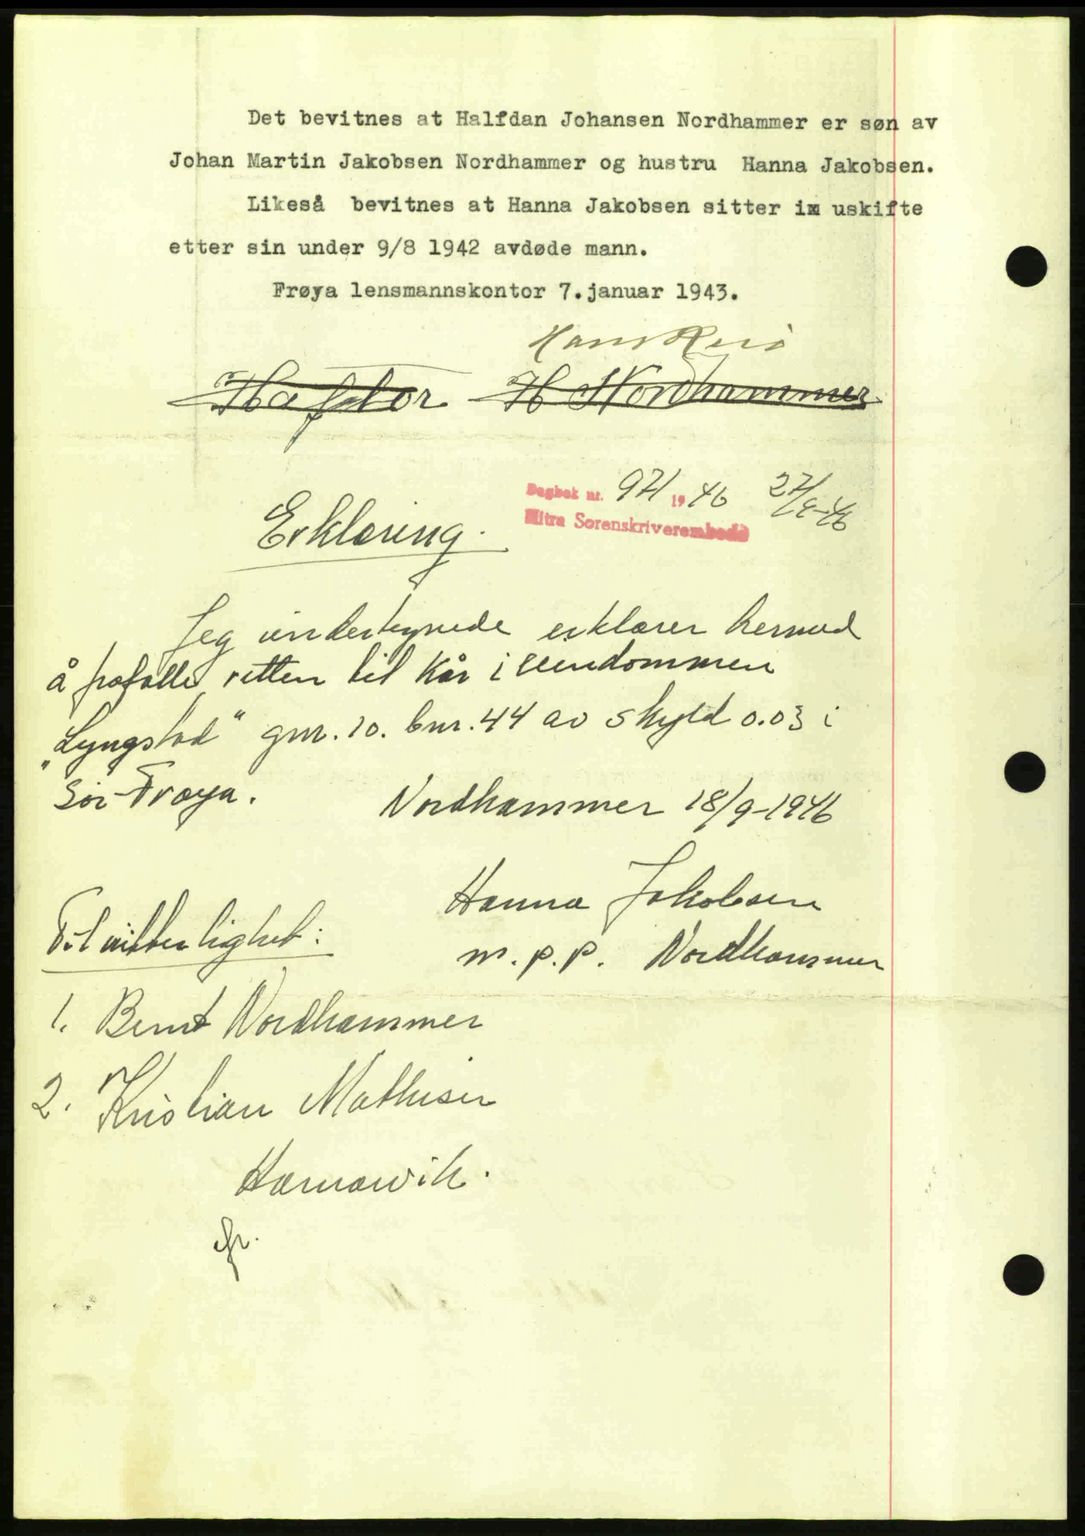 Det bevitnes at Halfdan Johansen Nordhammer er søn av
Johan Martin Jakobsen Nordhammer og hustru Hanna Jakobsen.
Likeså bevitnes at Hanna Jakobsen sitter i uskifte
etter sin under 9/8 1942 avdøde mann.
Frøya lensmannskontor 7.januar 1943.
Hans
Hafdor H Nordhammer
Dagbok nr. 971 1946 27/9-46
Hitra Sorenskriverembede
Erklæring.
Jeg undertegnede erklærer herved
å frafalle retten til kår i eiendommen
"Lyngstad" gnr. 10. bnr. 44 av skyld 0.03 i
Sør-Frøya.
Nordhammer 18/9-1946
Hanna Jakobsen
m.p.p. Nordhammer
Til vitterlighet:
1. Bernt Nordhammer
2. Kristian Mathisen
Hamarvik.